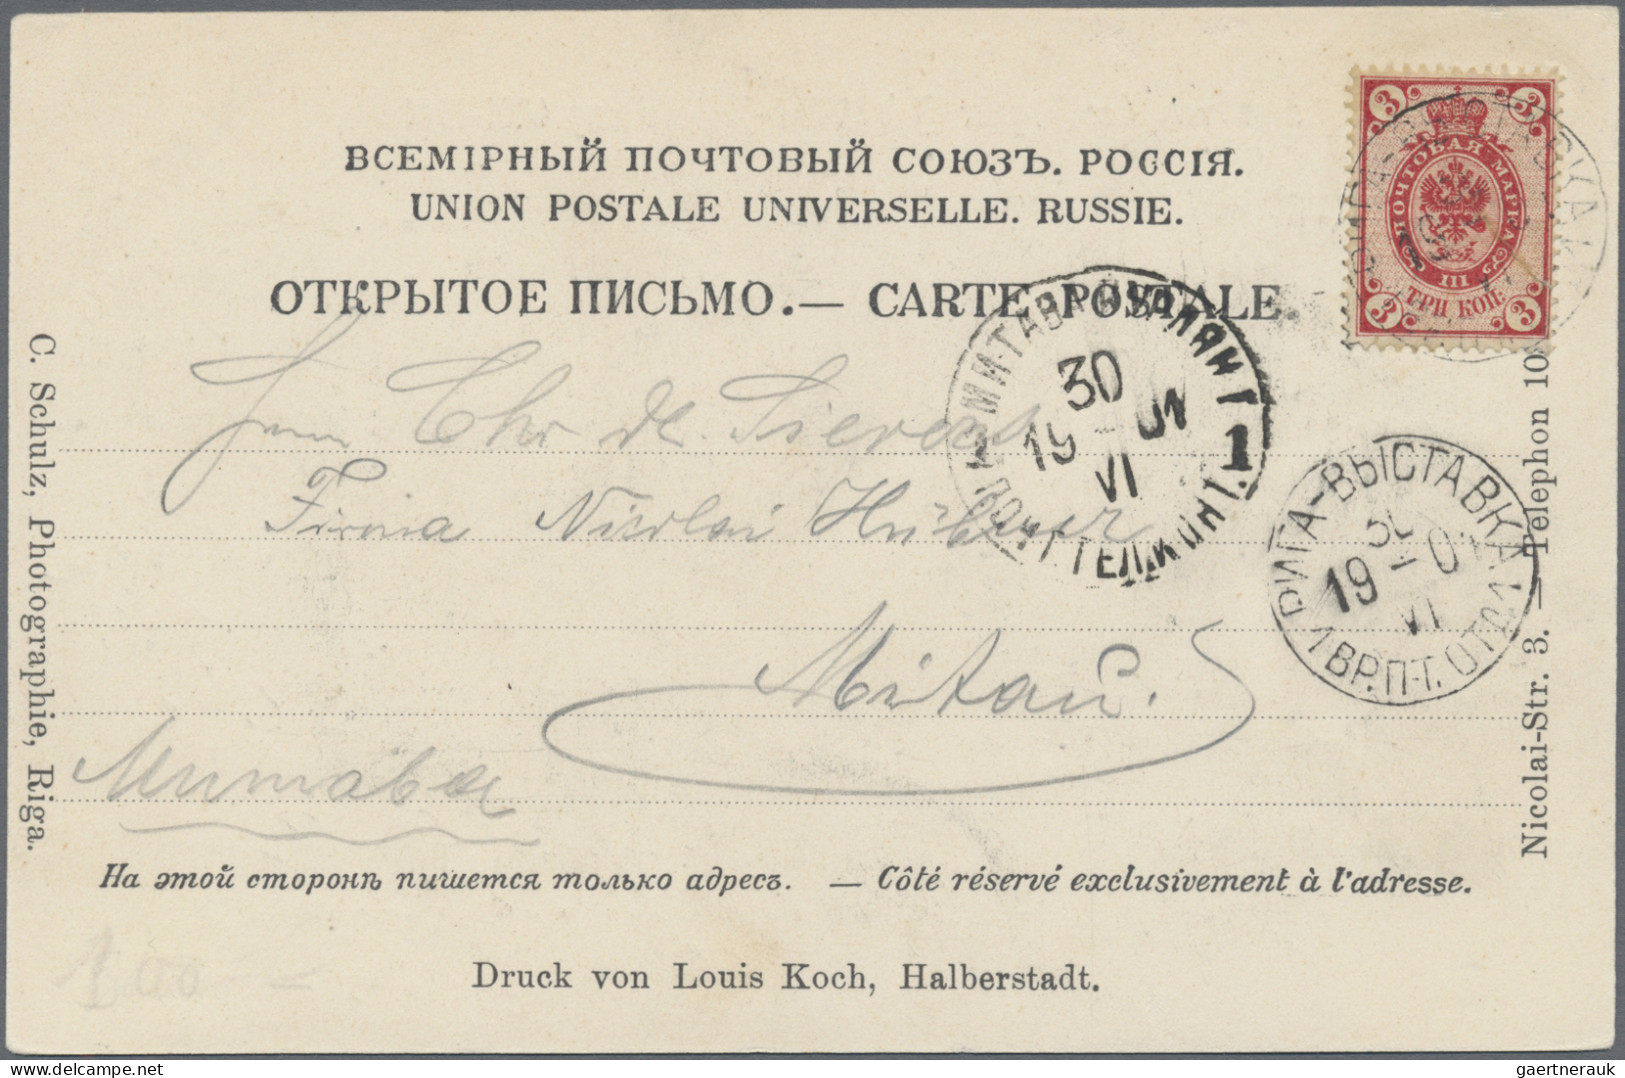 ВСЕМІРНЫЙ ПОЧТОВЫЙ СОЮЗЪ. РОССІЯ.
UNION POSTALE UNIVERSELLE. RUSSIE.
ОТКРЫТОЕ ПИСЬМО.— CARTE POSTALE.
3 3
ПОЧТОВАЯ МАРКА
III
ТРИ КОП.
3 3
МИТАВА КУРЛЯН Г
30
19 - 01
VI
1
ПОЧТ ТЕЛ КОНТ.
РИГА-ВЫСТАВКА
30
19 - 0
VI
ВР. П-Т. ОТД
Chr de Sievers
Firma Nicolai Hübner
Mitau.
Митава
C. Schulz, Photographie, Riga.
Nicolai-Str. 3. — Telephon 10
На этой сторонѣ пишется только адресъ. — Côté réservé exclusivement à l'adresse.
Druck von Louis Koch, Halberstadt.
gaertnerauk